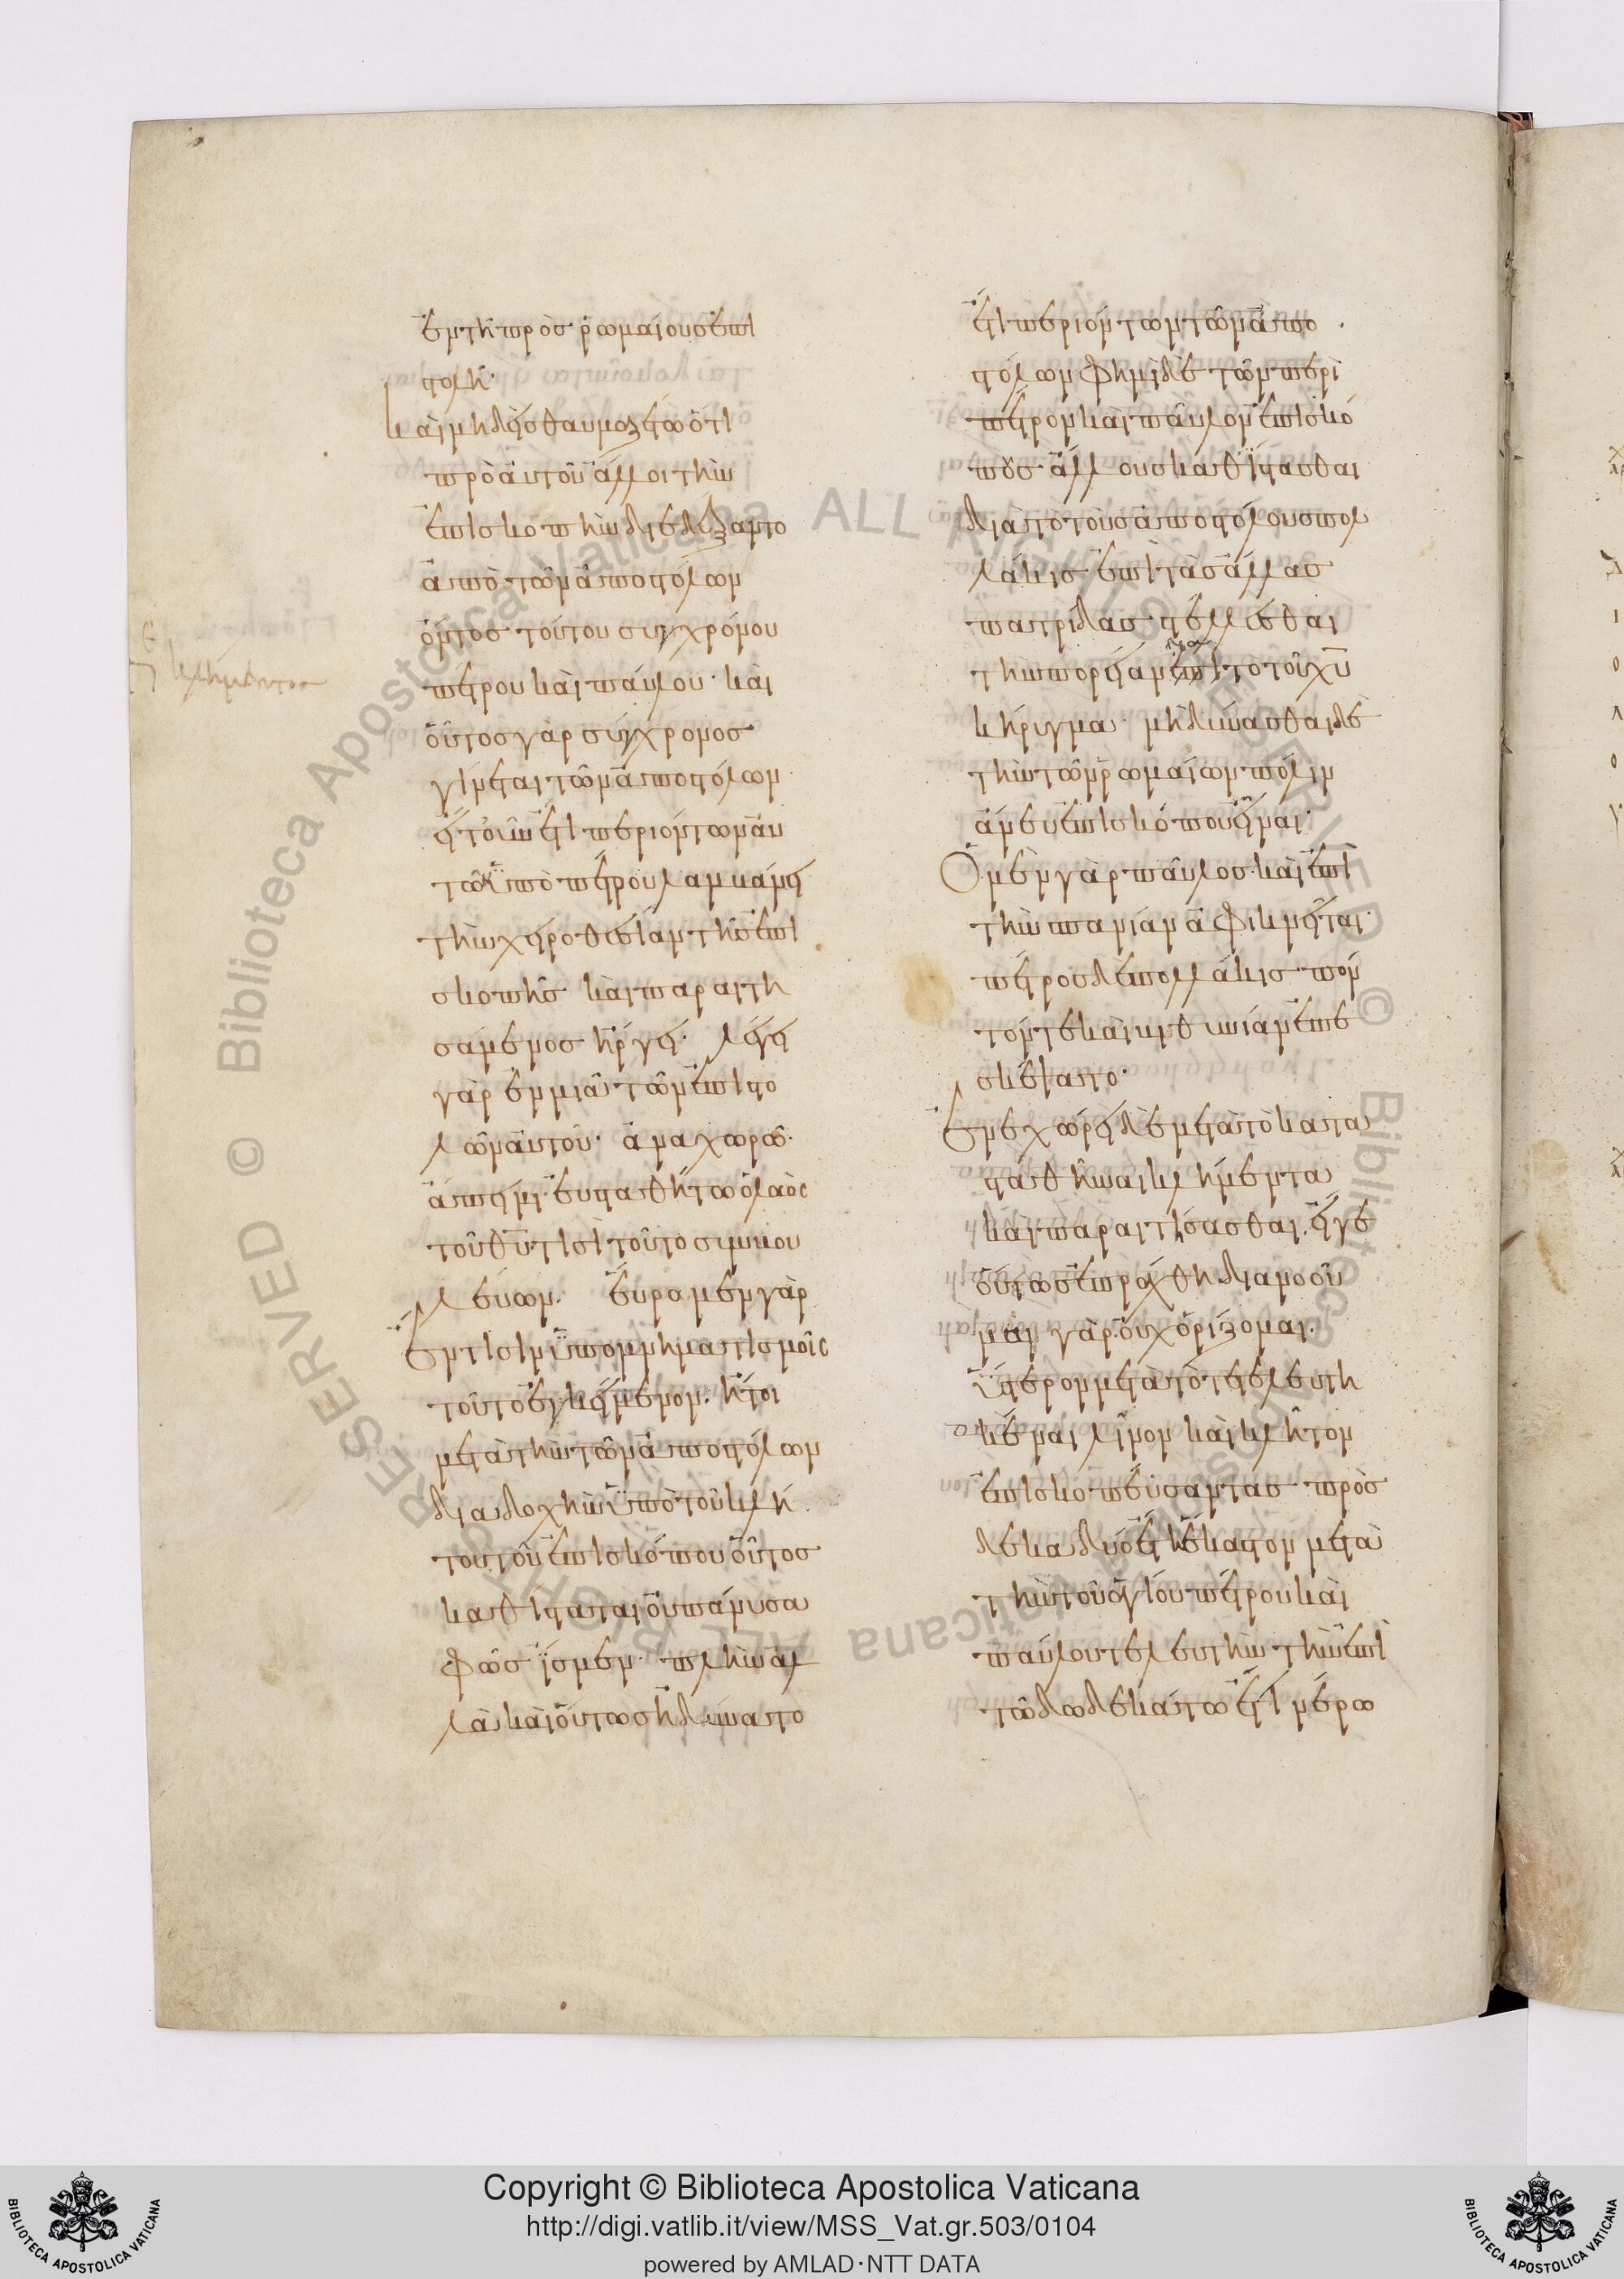 ἐν τῇ πρὸς ῥωμαίους ἐπι
στολῆ·
Καὶ μηδεὶς θαυμαζέτω ὅτι
πρὸ αὐτοῦ ἄλλοι τὴν
ἐπισκοπὴν διεδέξαντο
ἀπὸ τῶν ἀποστόλων
ὄντος τούτου συγχρόνου
πέτρου καὶ παύλου· καὶ
οὗτος γὰρ σύγχρονος
γίνεται τῶν ἀποστόλων·
εἴτ' οὖν ἔτι περιόντων αὐ
τῶν ὑπὸ πέτρου λαμβάνει
τὴν χειροθεσίαν τῆς ἐπι
σκοπῆς καὶ παραιτη
σάμενος ἤργει· λέγει
γὰρ ἐν μιᾶ τῶν ἐπιστο
λῶν αὐτοῦ· ἀναχωρῶ·
ἄπειμι εὐσταθήτω ὁ λαὸς
τοῦ θ̅υ̅ τισὶ τοῦτο συμβου
λεύων. εὕρομεν γὰρ
ἔν τισιν ὑπομνηματισμοῖς
τοῦτο ἐγκείμενον. ἤτοι
μετὰ τὴν τῶν ἀποστόλων
διαδοχὴν ὑπὸ τοῦ κλή
του τοῦ ἐπισκόπου οὗτος
καθίσταται οὐ πάνυ σα
φῶς ἴσμεν· πλὴν ἀλ
λὰ καὶ οὕτως ἠδύνατο
ἔτι περιόντων τῶν ἀπο
στόλων φημὶ δὲ τῶν περὶ
πέτρον καὶ παῦλον ἐπισκό
πους ἄλλους καθίστασθαι
διὰ τὸ τοὺς ἀποστόλους πολ
λάκις ἐπὶ τὰς ἄλλας
πατρίδας στέλλεσθαι
τὴν πορείαν ἐπὶ τὸ τοῦ χ̅υ̅
κήρυγμα· μὴ δύνασθαι δὲ
τὴν τῶν ῥωμαίων πόλιν
ἄνευ ἐπισκόπου εἶναι·
Ὁ μὲν γὰρ παῦλος καὶ ἐπὶ
τὴν σπανίαν ἀφικνεῖται·
πέτρος δὲ πολλάκις πόν
τόν τε καὶ βιθυνίαν ἐπε
σκέψατο·
Ἐνεχώρει δὲ μετὰ τὸ κατα
σταθῆναι κλήμεντα
καὶ παραιτήσασθαι. εἴγε
οὕτως ἐπράχθη διανοοῦ
μαι γὰρ οὐχ ὁρίζομαι·
ὕστερον μετὰ τὸ τετελευτη
κέναι λῖνον καὶ κλῆτον
ἐπισκοπεύσαντας πρὸς
δεκαδύο ἔτη ἕκαστον μετὰ
τὴν τοῦ ἁγίου πέτρου καὶ
παύλου τελευτὴν τὴν ἐπὶ
τῶ δωδεκάτω ἔτι νέρω
κλήμεντος